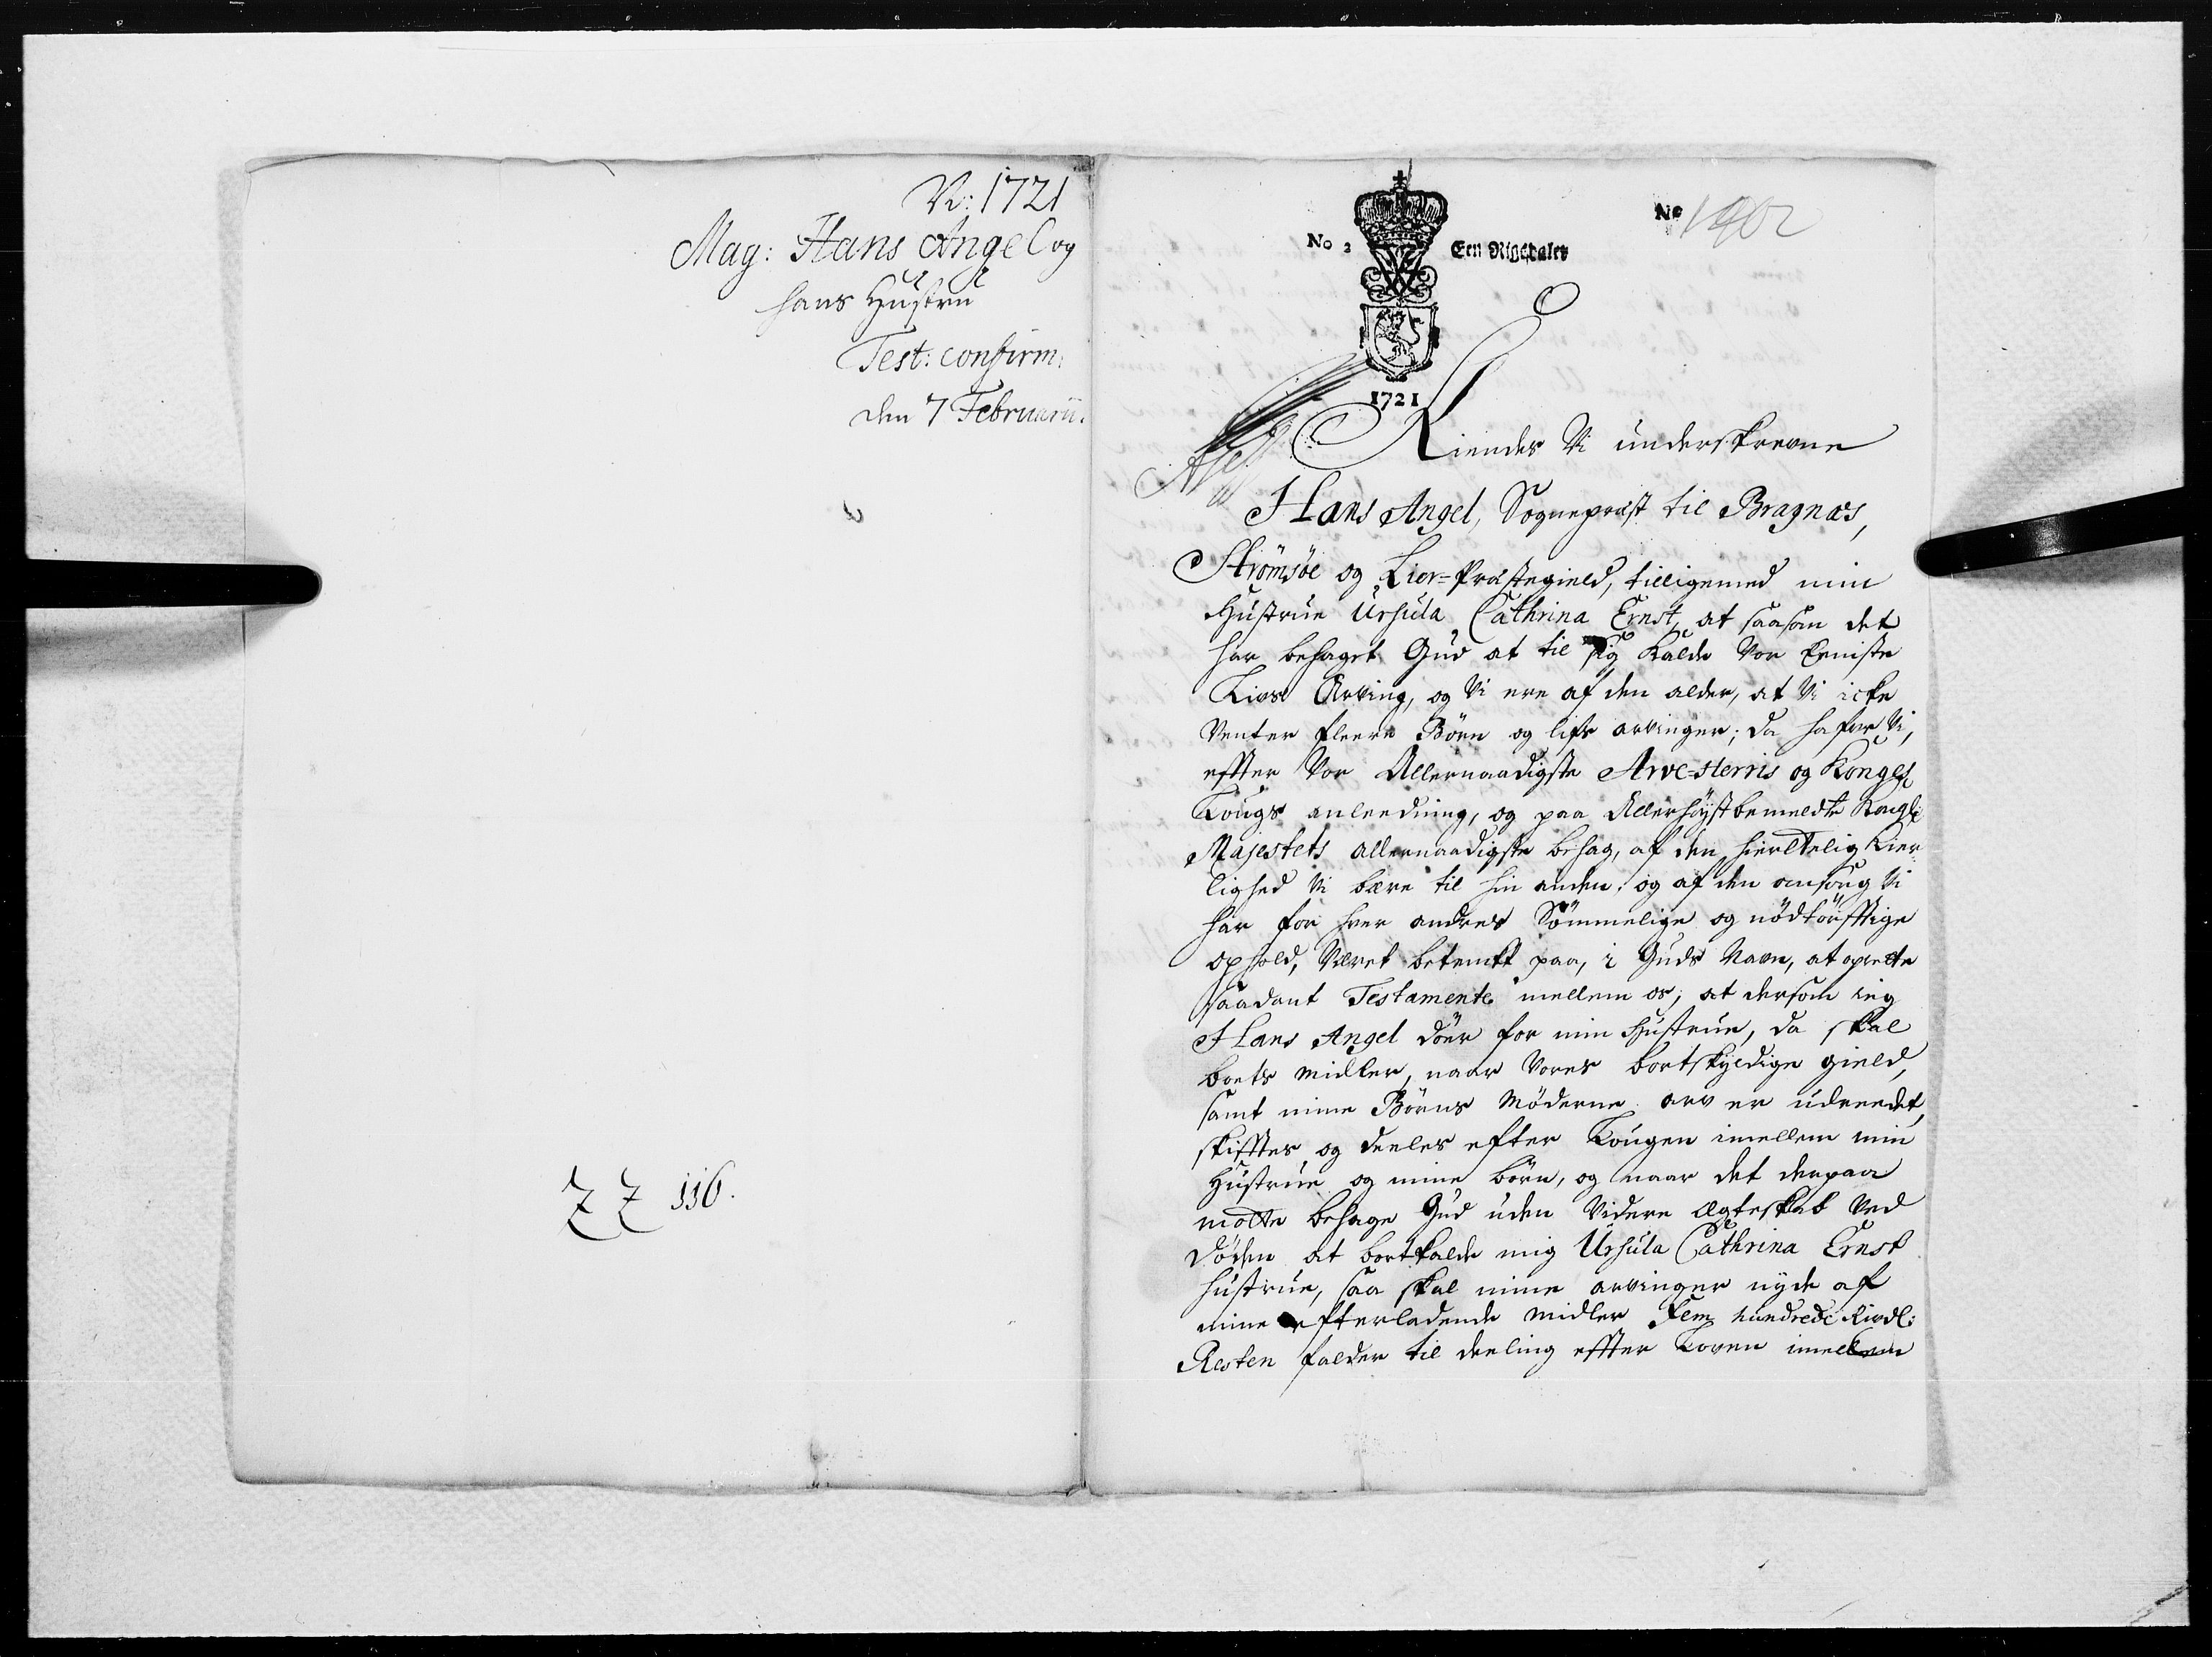 N: 1721
Mag: Hans Angel og
hans Hustru
Test: confirm:
den 7 Februarii.
ZZ 116.
No 2
Een Rixdaler
No 1402
1721
Kiendes Vi underskrevne
Hans Angel, Sognepræst til Bragnæs,
Strömsöe og Lier-Præstegield, tilligemed min
Hustrue Ursula Cathrina Ernst, at saasom det
har behaget Gud at til sig kalde Vor Eeniste
Livs Arving, og Vi ere af den alder, at Vi icke
Venter fleere Börn og lifs arvinger; da hafve Vi,
effter Vor Allernaadigste Arve-Herris og Konges
Lougs anleedning, og paa Allerhöystbemeldte Kongl:
Majestets allernaadigste behag, af den hiertelig Kier-
lighed Vi bære til hin anden, og af den omsorg Vi
har for hver andres Sömmelige og nödtörfftige
ophold, Været betenckt paa, i Guds Navn, at oprette
saadant Testamente mellem os; at dersom ieg
Hans Angel döer for min Hustrue, da skal
boets midler, naar Vores bortskyldige gield,
samt mine Börns Möderne arv er udreedet,
skifftes og deeles efter Lougen imellem min
Hustrue og mine börn, og naar det derpaa
motte behage Gud uden Videre ægteskab Ved
döden at bortkalde mig Ursula Cathrina Ernst
hustrue, saa skal mine arvinger nyde af
mine efterladende midler Fem hundrede Rixdl:
Resten falder til deeling effter Loven imellem